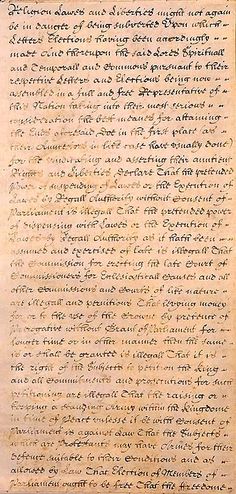 Religion Lawes and Liberties might not again
be in danger of being subverted Upon which
Letters Elections haveing been accordingly
made And thereupon the said Lords Spirituall
and Temporall and Commons pursuant to their
respective Letters and Elections being now
assembled in a full and free Representative of
this Nation taking into their most serious
consideration the best meanes for attaining
the Ends aforesaid Doe in the first place (as
their Auncestors in like case have usually done)
for the vindicating and asserting their auntient
Rights and Liberties, Declare That the pretended
Power of suspending of Lawes or the Execution of
Lawes by Regall Authority without Consent of
Parliament is illegall That the pretended power
of dispensing with Lawes or the Execution of
Lawes by Regall Authority as it hath been
assumed and exercised of late is illegall That
the Commission for erecting the late Court of
Commissioners for Ecclesiasticall Causes and all
other Commissions and Courts of like nature
are illegall and pernicious That levying money
for or to the use of the Crowne by pretence of
Prerogative without Grant of Parliament for
longer time or in other manner then the same
is or shall be granted is illegall That it is
the right of the Subjects to petition the King
and all Commitments and prosecutions for such
petitioning are illegall That the raising or
keeping a standing Army within the Kingdome
in time of Peace unlesse it be with Consent of
Parliament is against Law That the Subjects
which are Protestants may have Armes for their
Defence suitable to their Conditions and as
allowed by Law That Election of Members of
Parliament ought to be free That the freedome